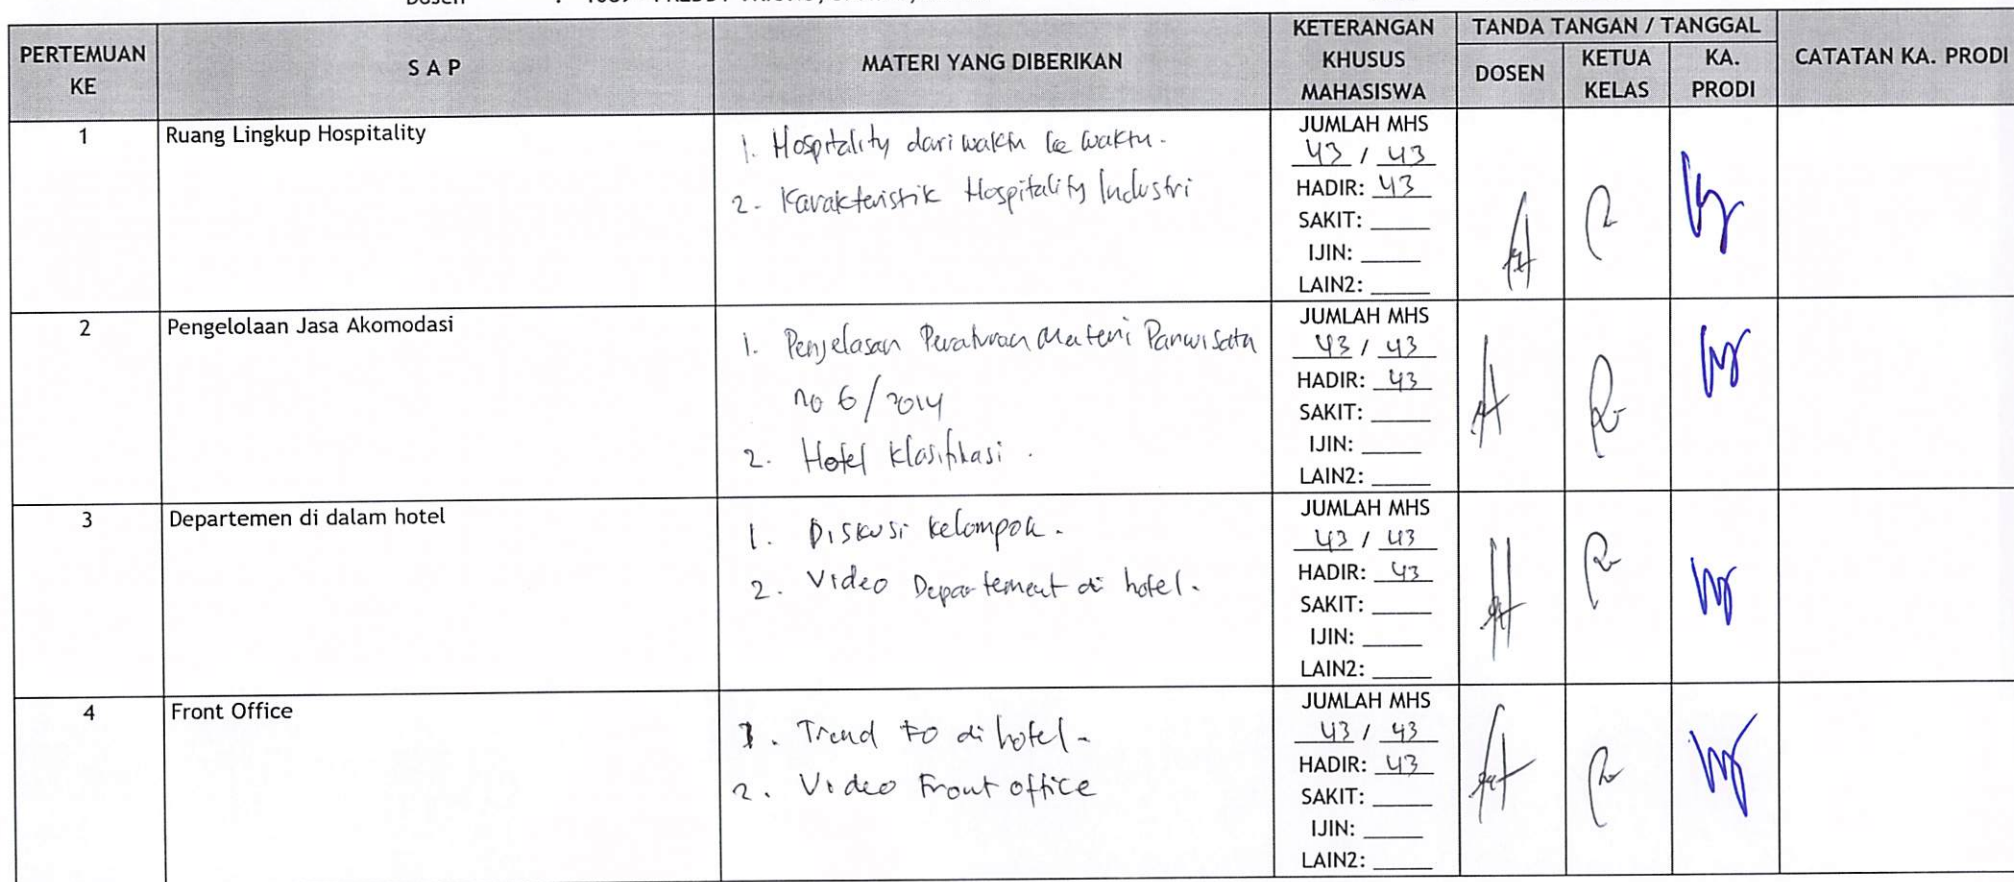 Dosen :
PERTEMUAN KE
S A P
MATERI YANG DIBERIKAN
KETERANGAN KHUSUS MAHASISWA
TANDA TANGAN / TANGGAL
DOSEN
KETUA KELAS
KA. PRODI
CATATAN KA. PRODI
1
Ruang Lingkup Hospitality
1. Hospitality dari waktu ke waktu.
2. Karakteristik Hospitality Industri
JUMLAH MHS
43 / 43
HADIR: 43
SAKIT:
IJIN:
LAIN2:
2
Pengelolaan Jasa Akomodasi
1. Penjelasan Peraturan Materi Pariwisata
no 6/2014
2. Hotel Klasifikasi.
JUMLAH MHS
43 / 43
HADIR: 43
SAKIT:
IJIN:
LAIN2:
3
Departemen di dalam hotel
1. Diskusi kelompok.
2. Video Departement di hotel.
JUMLAH MHS
43 / 43
HADIR: 43
SAKIT:
IJIN:
LAIN2:
4
Front Office
1. Trend FO di hotel.
2. Video Front office
JUMLAH MHS
43 / 43
HADIR: 43
SAKIT:
IJIN:
LAIN2: